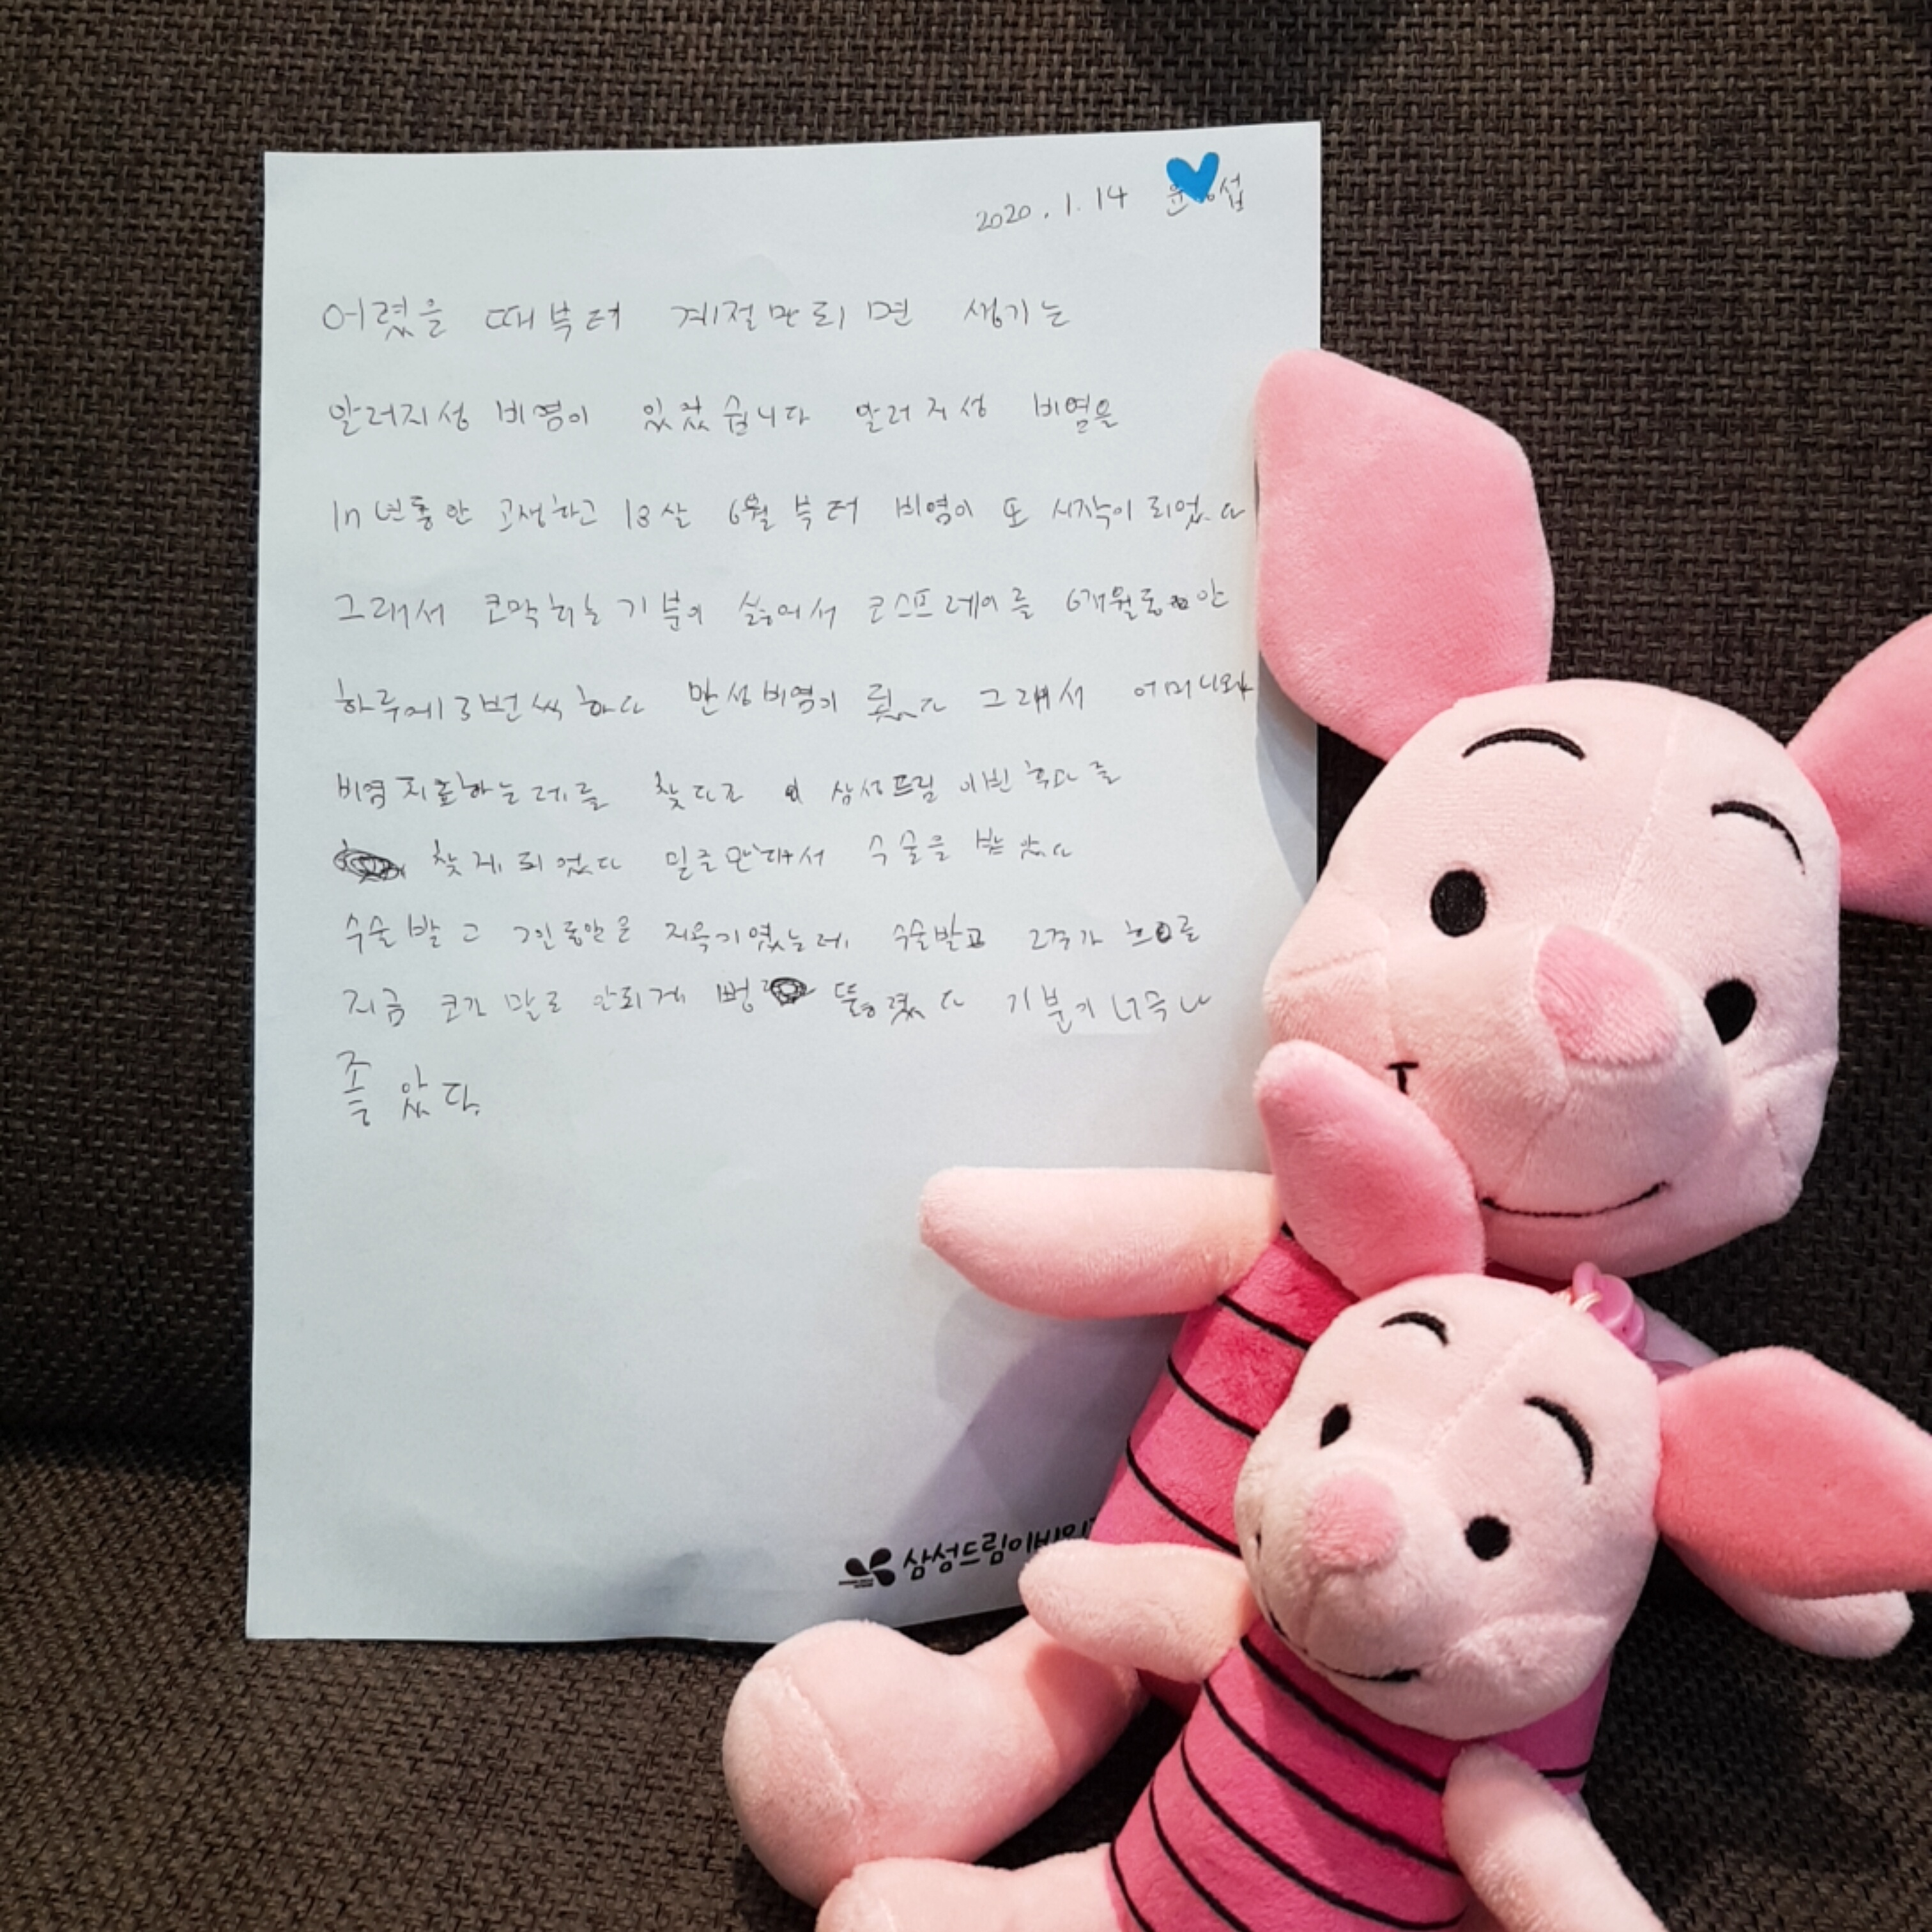 2020. 1. 14 윤 섭
어렸을 때부터 계절만 되면 생기는
알러지성 비염이 있었습니다 알러지성 비염을
년동안 고생하고 18살 6월부터 비염이 또 시작이 되었다
그래서 코막히는 기분이 싫어서 코스프레이를 6개월동안
하루에 3번씩 하다 만성비염이 됬다 그래서 어머니와
비염치료하는데를 찾다고 삼성드림이빈후과를
찾게 되었다 믿은만해서 수술을 받았다
수술받고 7일동안은 지옥기였는데 수술받고 2주가 흐으를
지금 코가 말로 안되게 뻥 뚫렸다 기분이 너무나
좋았다.
삼성드림이비인